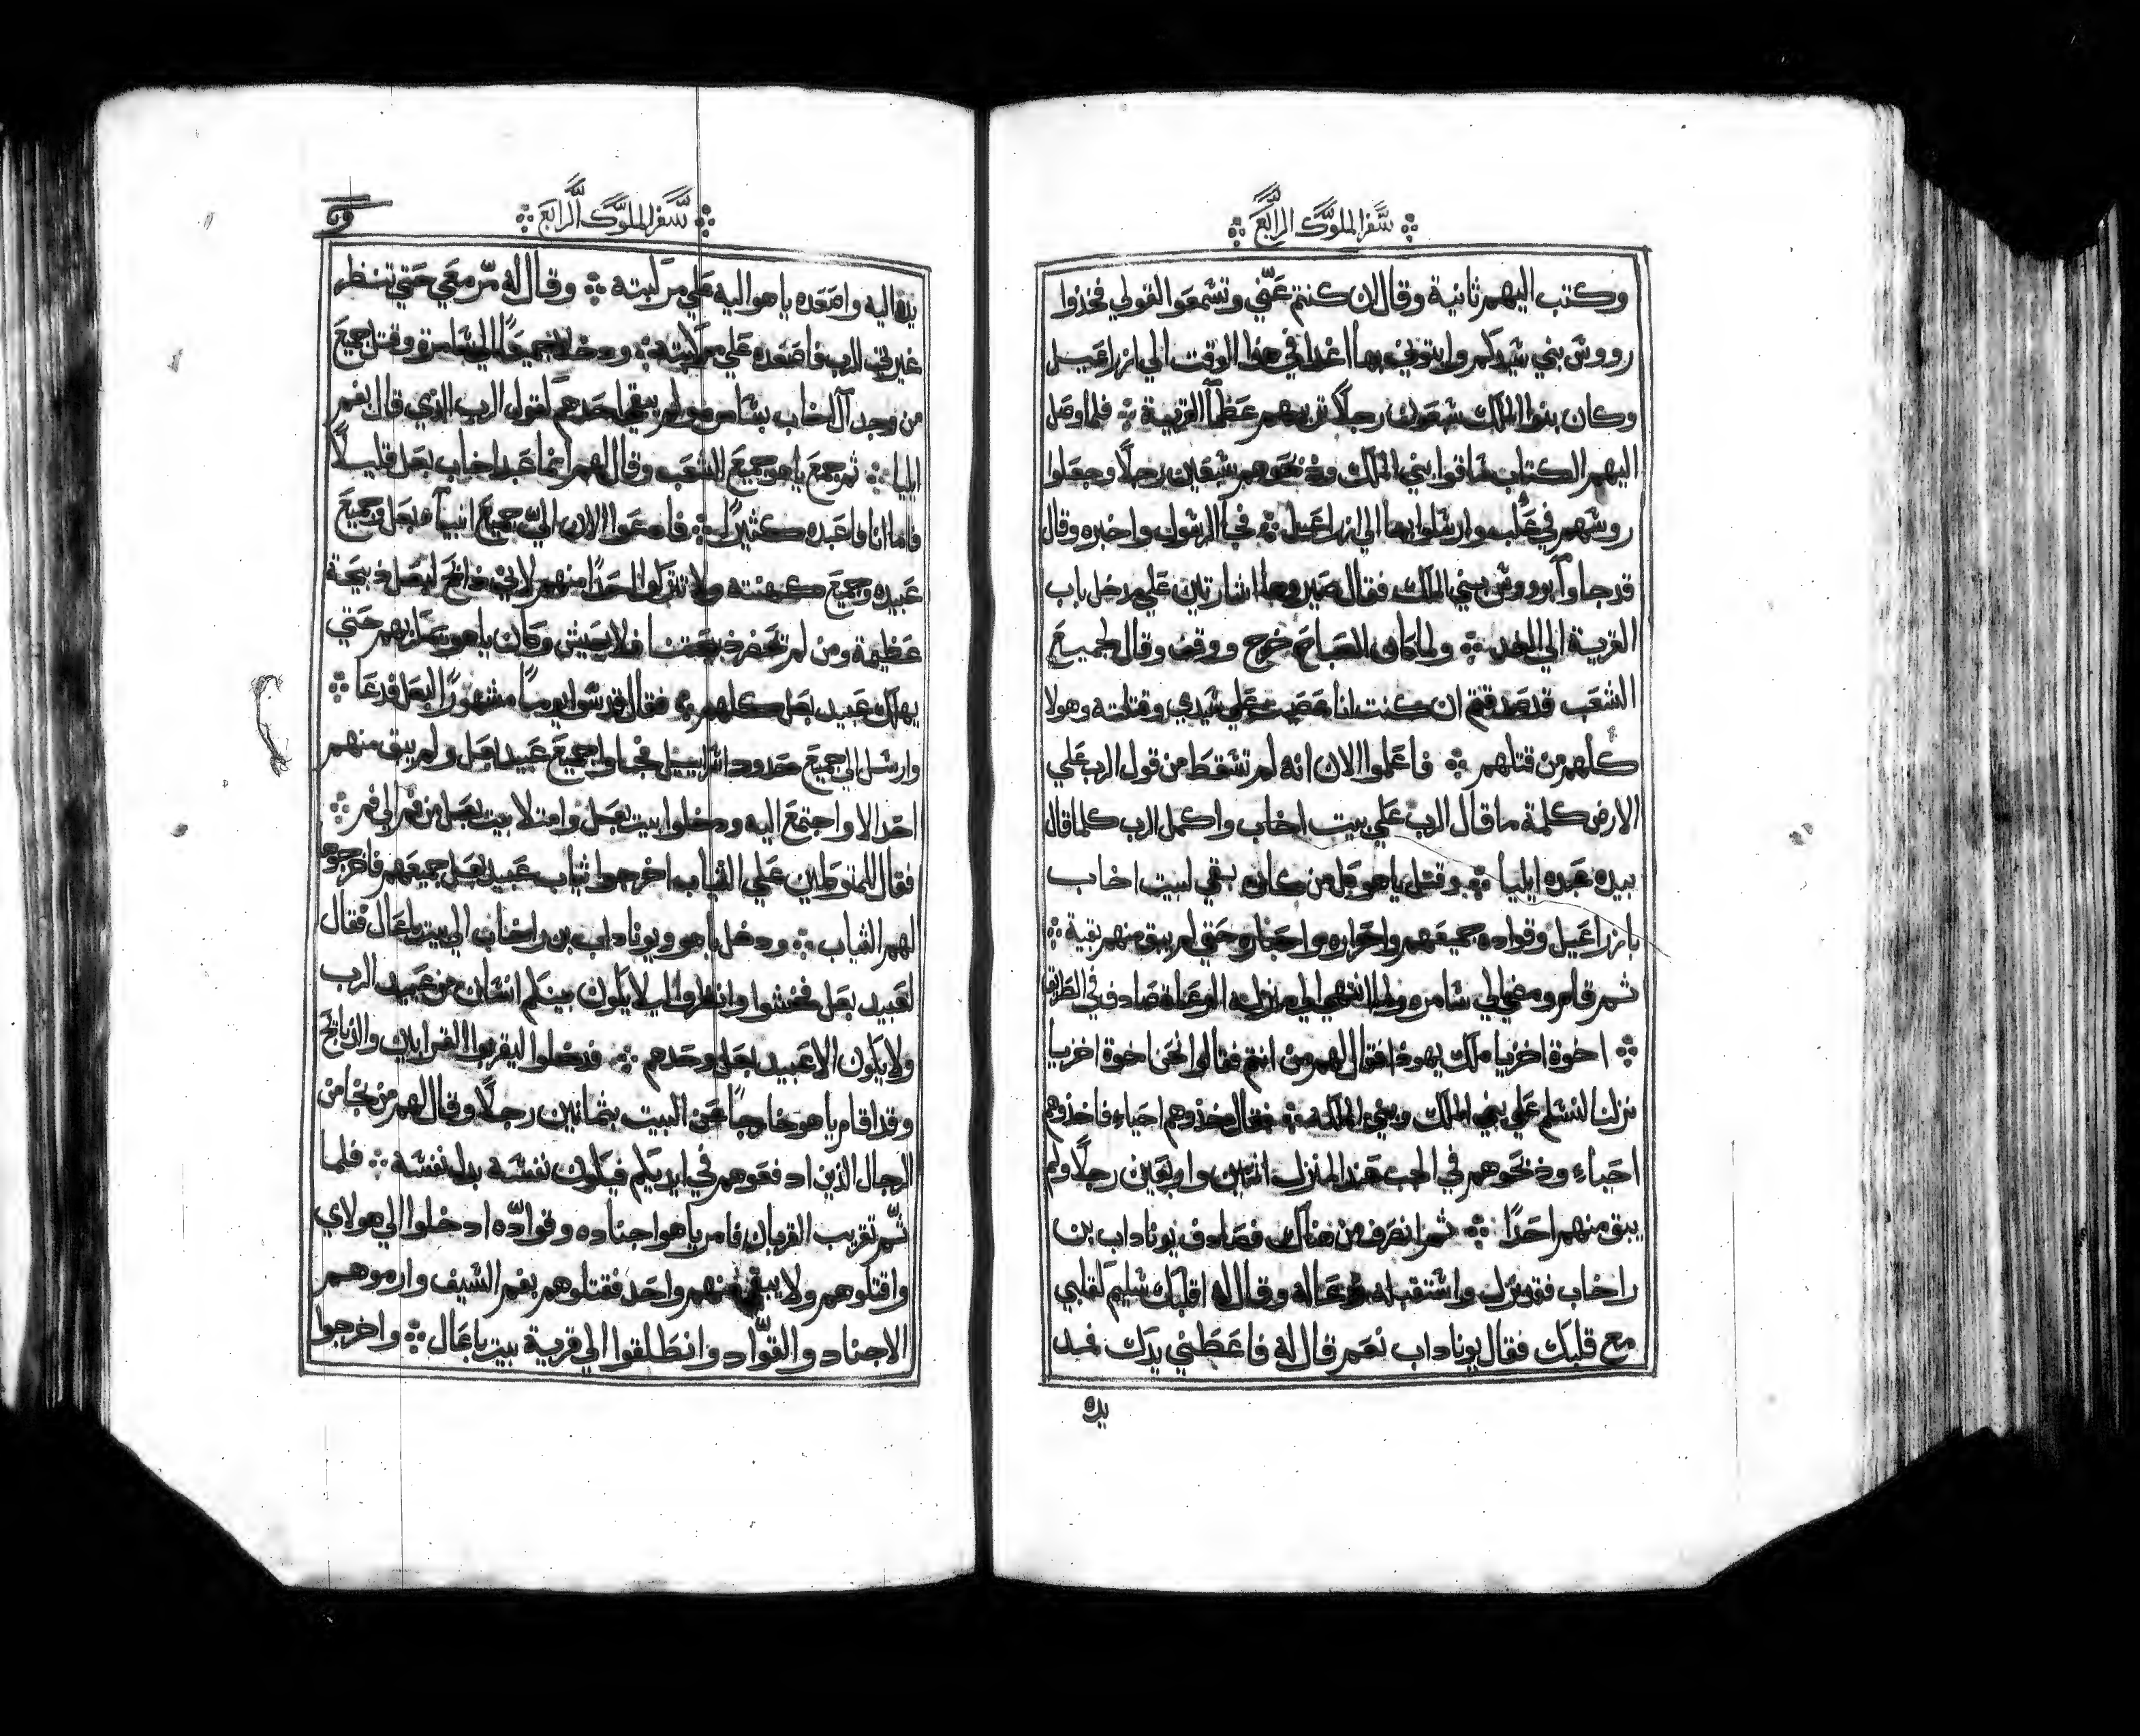 سفر الملوك الرابع
وكتب اليهم ثانية وقال ان كنتم عني وتسمعوا لقولي فخذوا
رووس بني سيدكم وايتوني بها اغدا في هذا الوقت الي ازراعيل
وكان بنوا الملك سبعون رجلا تربيهم عظما القرية فلما وصل
اليهم الكتاب ساقوا بني الملك وذبحوهم سبعين رجلا وجعلوا
روسهم في علب وارسلوا بها الي ازراعيل فجا الرسول واخبره وقال
قد جاوا برووس بني الملك فقال صيروها اشارتين علي مدخل باب
القرية الي الغد ولما كان الصباح خرج ووقف وقال لجميع
الشعب قد صدقتم ان كنت انا عصيت علي سيدي وقتلته وهولا
كلهم من قتلهم فاعلموا الان انه لم تسقط من قول الرب علي
الارض كلمة ما قال الرب علي بيت اخاب واكمل الرب كلما قال
بيده عبده ايليا وقتل ياهو كل من كان بقي لبيت اخاب
بازراعيل وقواده جميعهم واحراره واحباره حتي لم يبق منهم بقية
ثم قام ومضي الي سامره ولما انتهي الي منزله الرعاة صادف في الطريق
اخوة اخزيا ملك يهوذا فقال لهم من انتم فقالوا نحن اخوة اخزيا
نزلنا لنسلم علي بني الملك وبني الملكه فقال خذوهم احياء فاخذوهم
احياء وذبحوهم في الجب عند المنزل اثنين واربعين رجلا ولم
يبق منهم احدا ثم انصرف من هناك فصادف يوناداب بن
راخاب فقد نزل واستقبله فدعا له وقال له اقلبك سليم كقلبي
مع قلبك فقال يوناداب نعم قال له فاعطني يدك فمد
يده
سفر الملوك الرابع
يده اليه واصعده ياهو اليه علي مركبته وقال له سر معي حتي تنظر
غيرتي للرب فاصعده علي مركبته ودخلا جميعا الي سامرة وقتل جميع
من وجد لال اخاب بسامره ولم يبقي احدهم كقول الرب الذي قال بفم
ايليا ثم جمع ياهو جميع الشعب وقال لهم انما عبد اخاب بعل قليلا
فاما انا فاعبده كثيرا فادعوا الان الي جميع انبياء بعل وجميع
عبيده وجميع كهنته ولا تتركوا احدا منهم لاني ذابح لبعل ذبيحة
عظيمة ومن لم تحضر ذبيحتنا فلا يعيش وكان ياهو يمكر بهم حتي
يهلك عبيد بعل كلهم فقال قدسوا يوما مشهورا لبعل فدعا
وارسل الي جميع حدود اسراييل فجاوا جميع عبيد بعل ولم يبق منهم
احد الا واجتمع اليه ودخلوا بيت بعل وامتلا بيت بعل من فم الي فم
فقال للمتوكلين علي الثياب اخرجوا ثياب عبيد بعل جميعهم فاخرجوا
لهم الثياب ودخل ياهو ويوناداب بن راخاب الي بيت باعال فقال
لعبيد بعل فتشوا وانظروا ليلا يكون بينكم انسان من عبيد الرب
ولا يكون الا عبيد بعل وحدهم فدخلوا ليقربوا القرابين والذبايح
وقد اقام ياهو خارجا عن البيت بثمانين رجلا وقال لهم من نجا من
الرجال الذين ادفعوهم في ايديكم فيكون نفسه بدل نفسه فلما
تم تقريب القربان فامر ياهو اجناده وقواده ادخلوا الي هولاي
واقتلوهم ولا يبقي منهم واحد فقتلوهم بفم السيف وارموهم
الاجناد والقواد وانطلقوا الي قرية بيت باعال واخرجوا